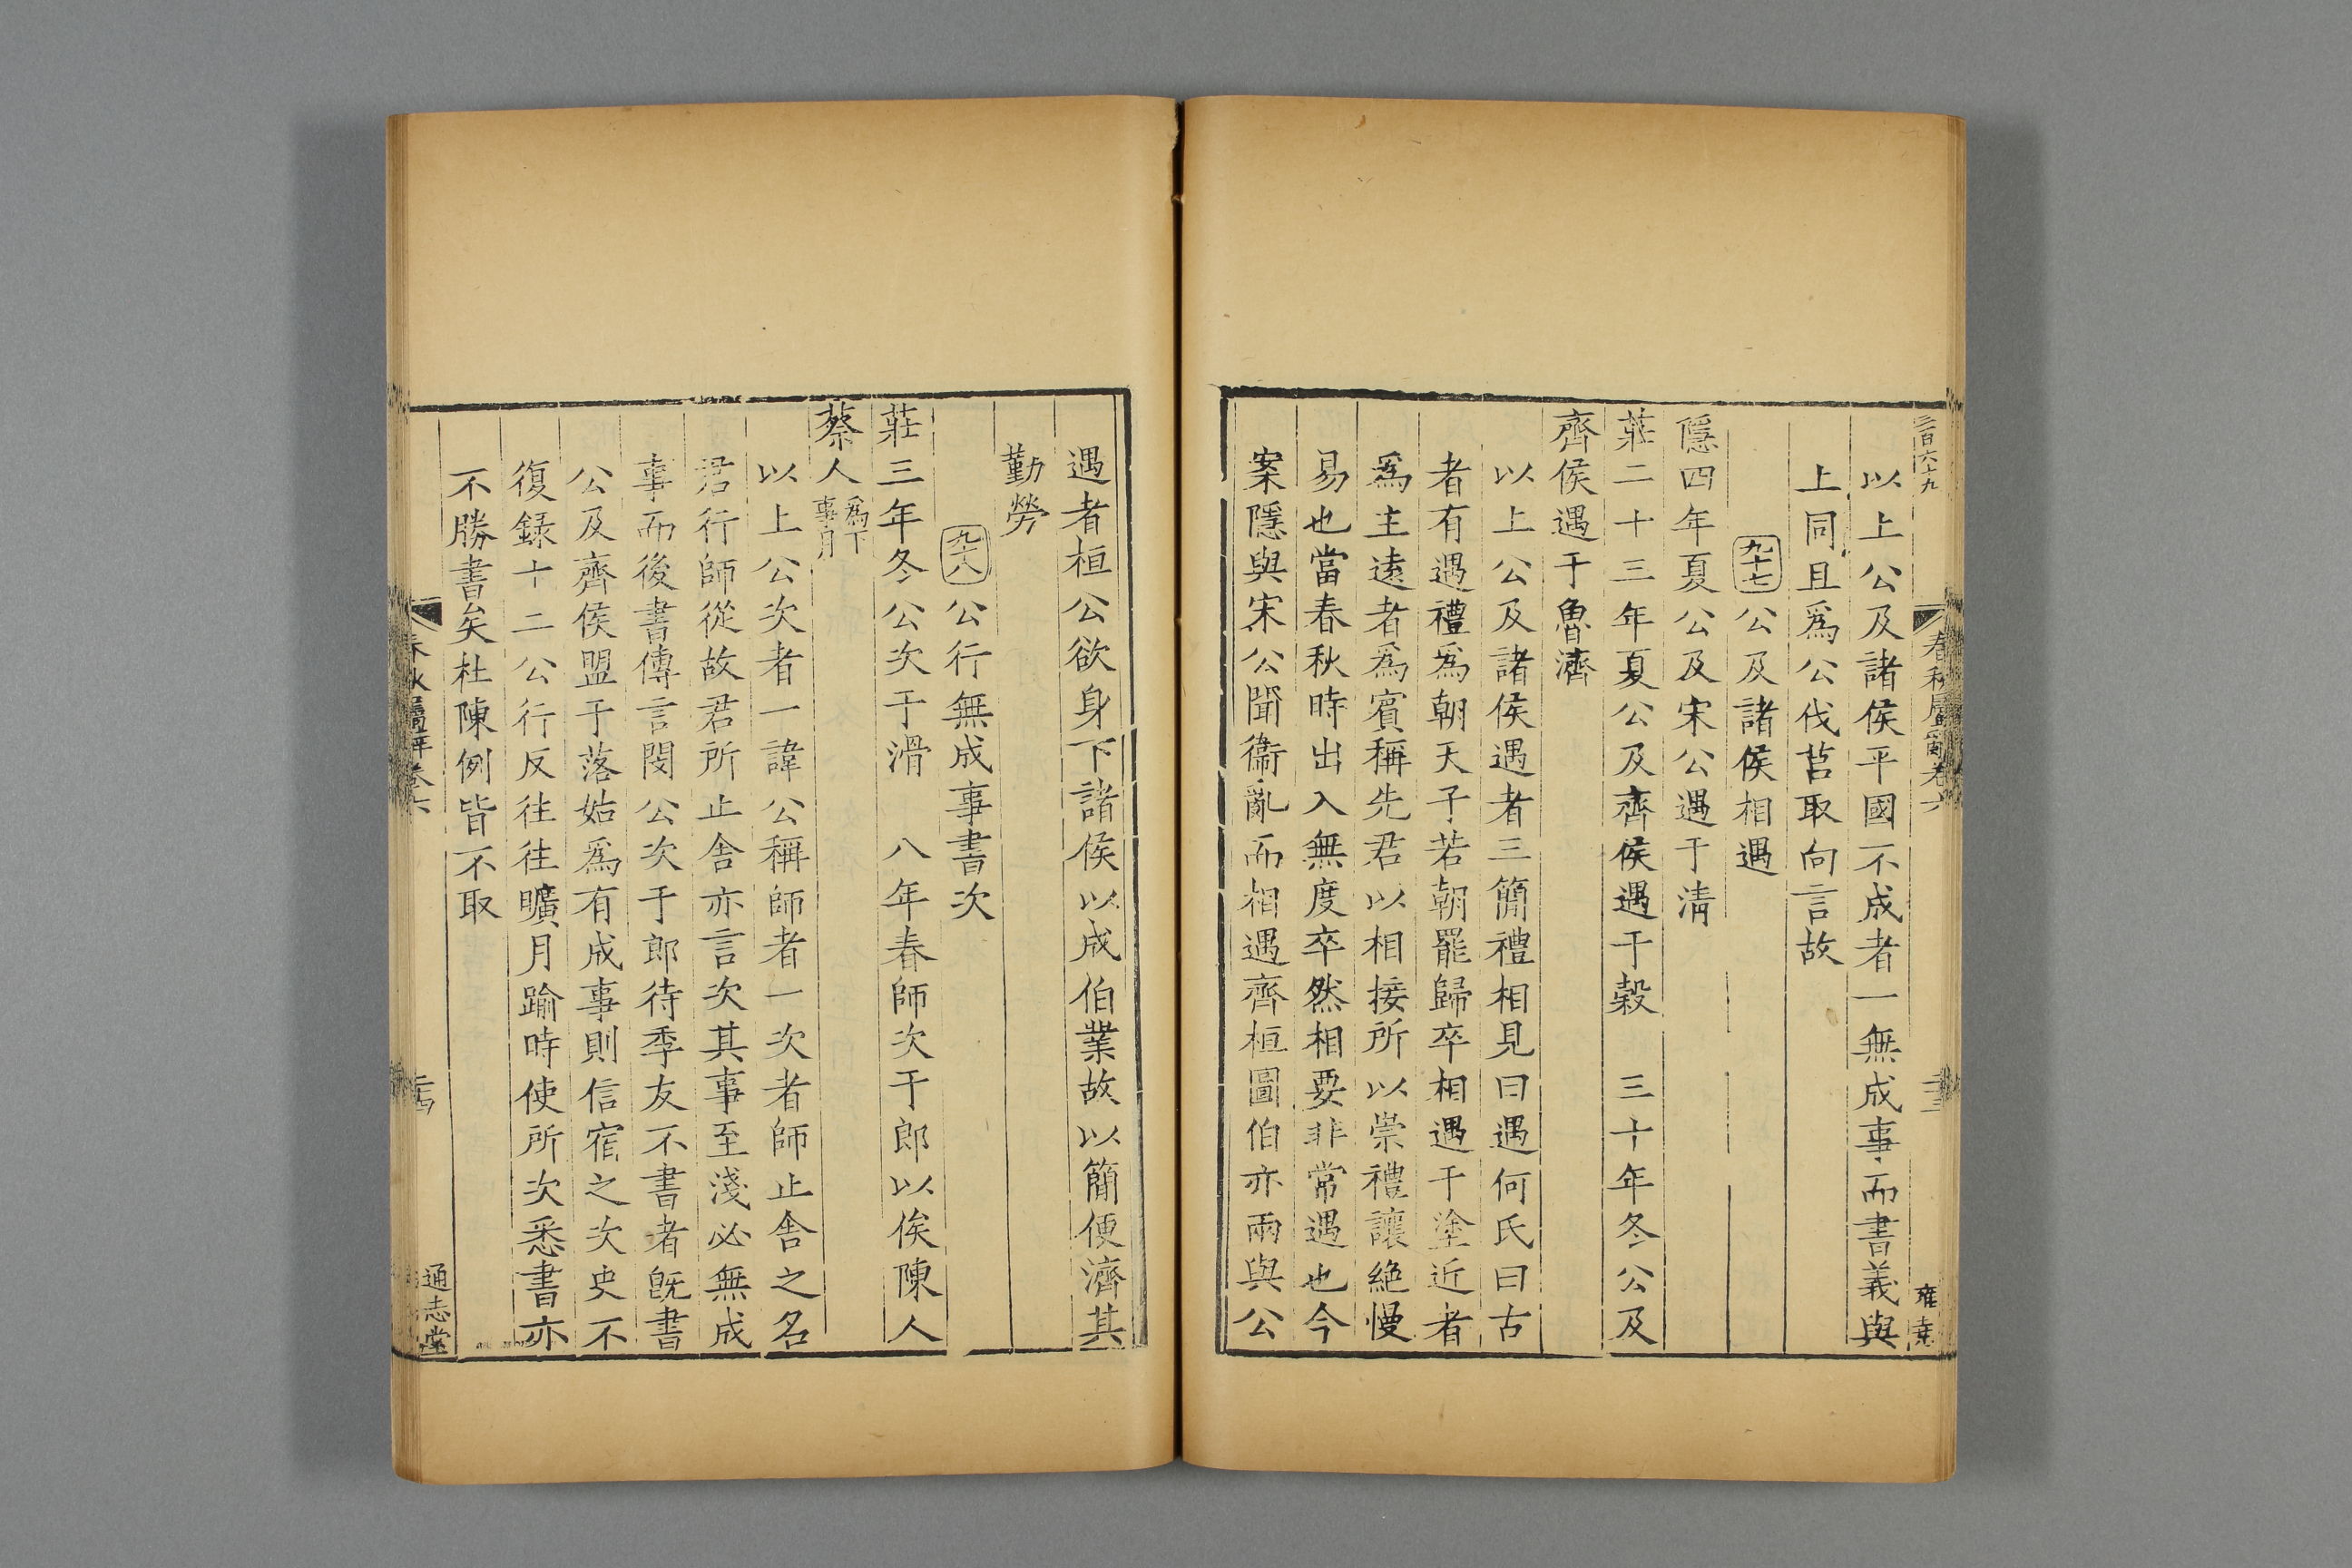 三百六十九
春秋屬辭卷六
二十三
雍堯
以上公及諸侯平國不成者一無成事而書義與
上同且爲公伐莒取向言故
九十七 公及諸侯相遇
隱四年夏公及宋公遇于清
莊二十三年夏公及齊侯遇于穀 三十年冬公及
齊侯遇于魯濟
以上公及諸侯遇者三簡禮相見曰遇何氏曰古
者有遇禮爲朝天子若朝罷歸卒相遇于塗近者
爲主遠者爲賓稱先君以相接所以崇禮讓絶慢
易也當春秋時出入無度卒然相要非常遇也今
案隱與宋公聞衞亂而相遇齊桓圖伯亦兩與公
遇者桓公欲身下諸侯以成伯業故以簡便濟其
勤勞
九十八 公行無成事書次
莊三年冬公次于滑 八年春師次于郎以俟陳人
蔡人爲下事月
以上公次者一諱公稱師者一次者師止舍之名
君行師從故君所止舍亦言次其事至淺必無成
事而後書傳言閔公次于郎待季友不書者旣書
公及齊侯盟于落姑爲有成事則信宿之次史不
復録十二公行反往往曠月踰時使所次悉書亦
不勝書矣杜陳例皆不取
春秋屬辭卷六
二十四
通志堂